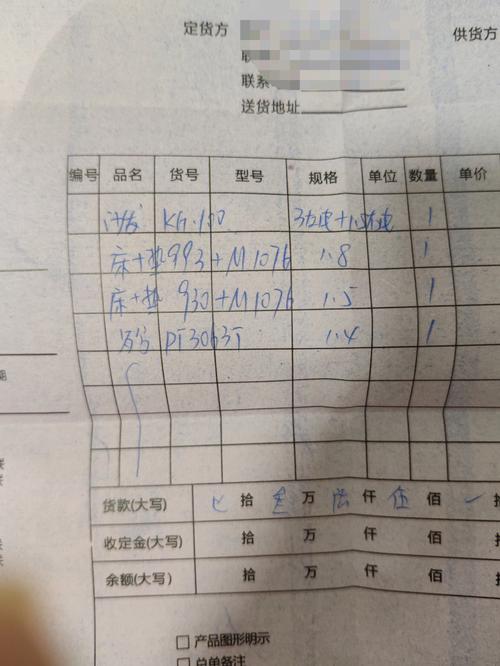 定货方 供货方
联
联系
送货地址
编号 品名 货号 型号 规格 单位 数量 单价
沙发 KG.100 1
床+垫 993+M1076 1.8 1
床+垫 930+M1076 1.5 1
PT3063T 1.4 1
货款(大写) 拾 万 仟 伍 佰 拾
收定金(大写) 拾 万 仟 佰 拾
余额(大写) 拾 万 仟 佰 拾
产品图形明示
总单备注